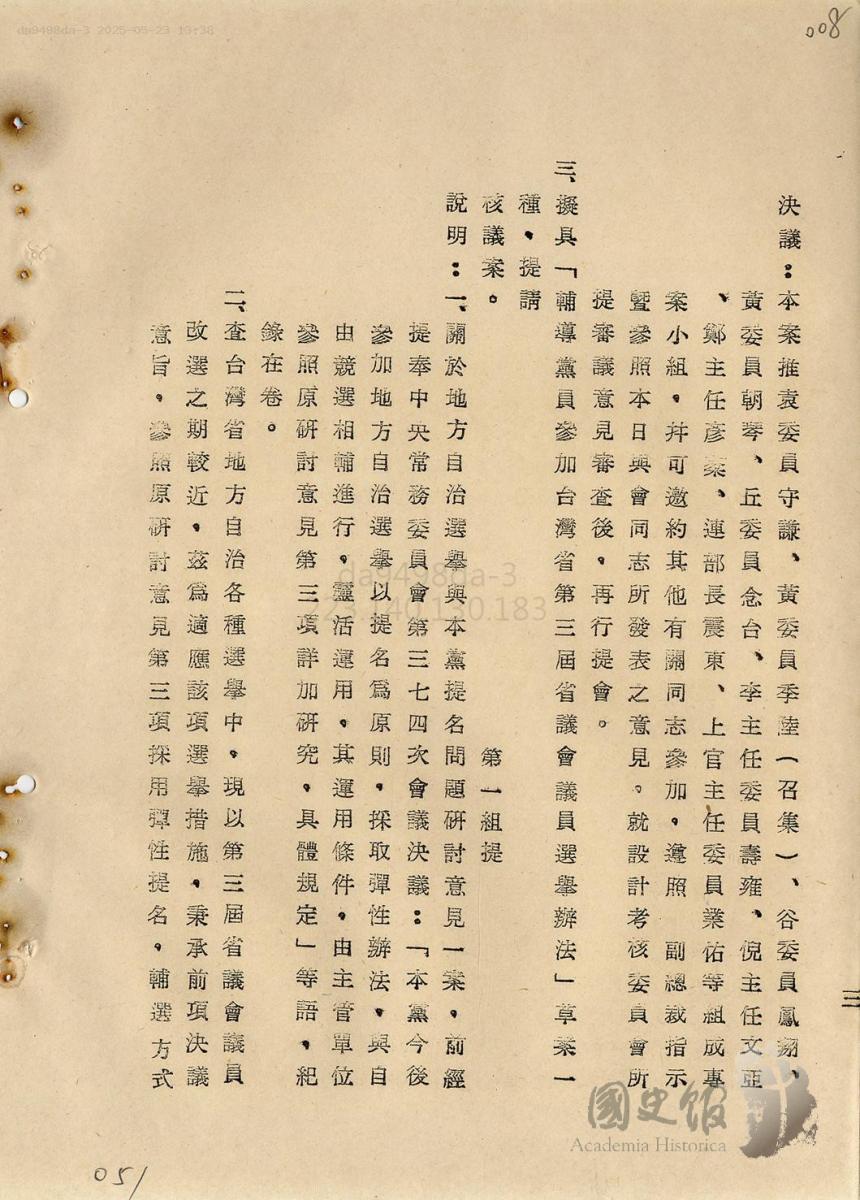 008
da9498da-3 2025-05-23 19:38
決議：本案推袁委員守謙、黃委員季陸（召集）、谷委員鳳翔、
黃委員朝琴、丘委員念台、李主任委員壽雍、倪主任文亞
、鄭主任彥棻、連部長震東、上官主任委員業佑等組成專
案小組，幷可邀約其他有關同志參加，遵照　副總裁指示
暨參照本日與會同志所發表之意見，就設計考核委員會所
提審議意見審查後，再行提會。
三、擬具「輔導黨員參加台灣省第三屆省議會議員選舉辦法」草案一
種，提請
核議案。
第一組提
說明：一、關於地方自治選舉與本黨提名問題研討意見一案，前經
提奉中央常務委員會第三七四次會議決議：「本黨今後
參加地方自治選舉以提名爲原則，採取彈性辦法，與自
由競選相輔進行，靈活運用，其運用條件，由主管單位
參照原研討意見第三項詳加研究，具體規定」等語，紀
錄在卷。
二、查台灣省地方自治各種選舉中，現以第三屆省議會議員
改選之期較近，茲爲適應該項選舉措施，秉承前項決議
意旨，參照原研討意見第三項採用彈性提名，輔選方式
三
da9498da-3
223.140.130.183
國史館
Academia Historica
051